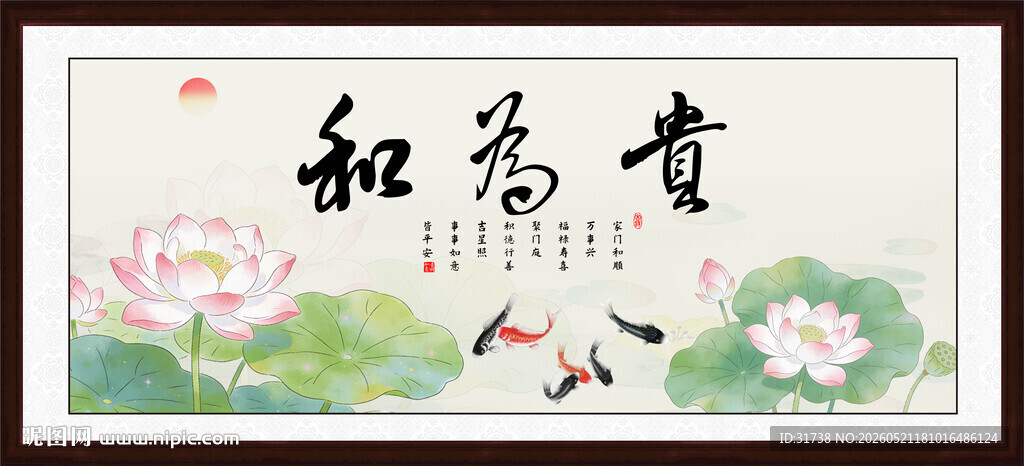 和為貴
家门和顺
万事兴
福禄寿喜
聚门庭
积德行善
吉星照
事事如意
皆平安
昵图网 www.nipic.com
ID:31738 NO:20260521181016486124